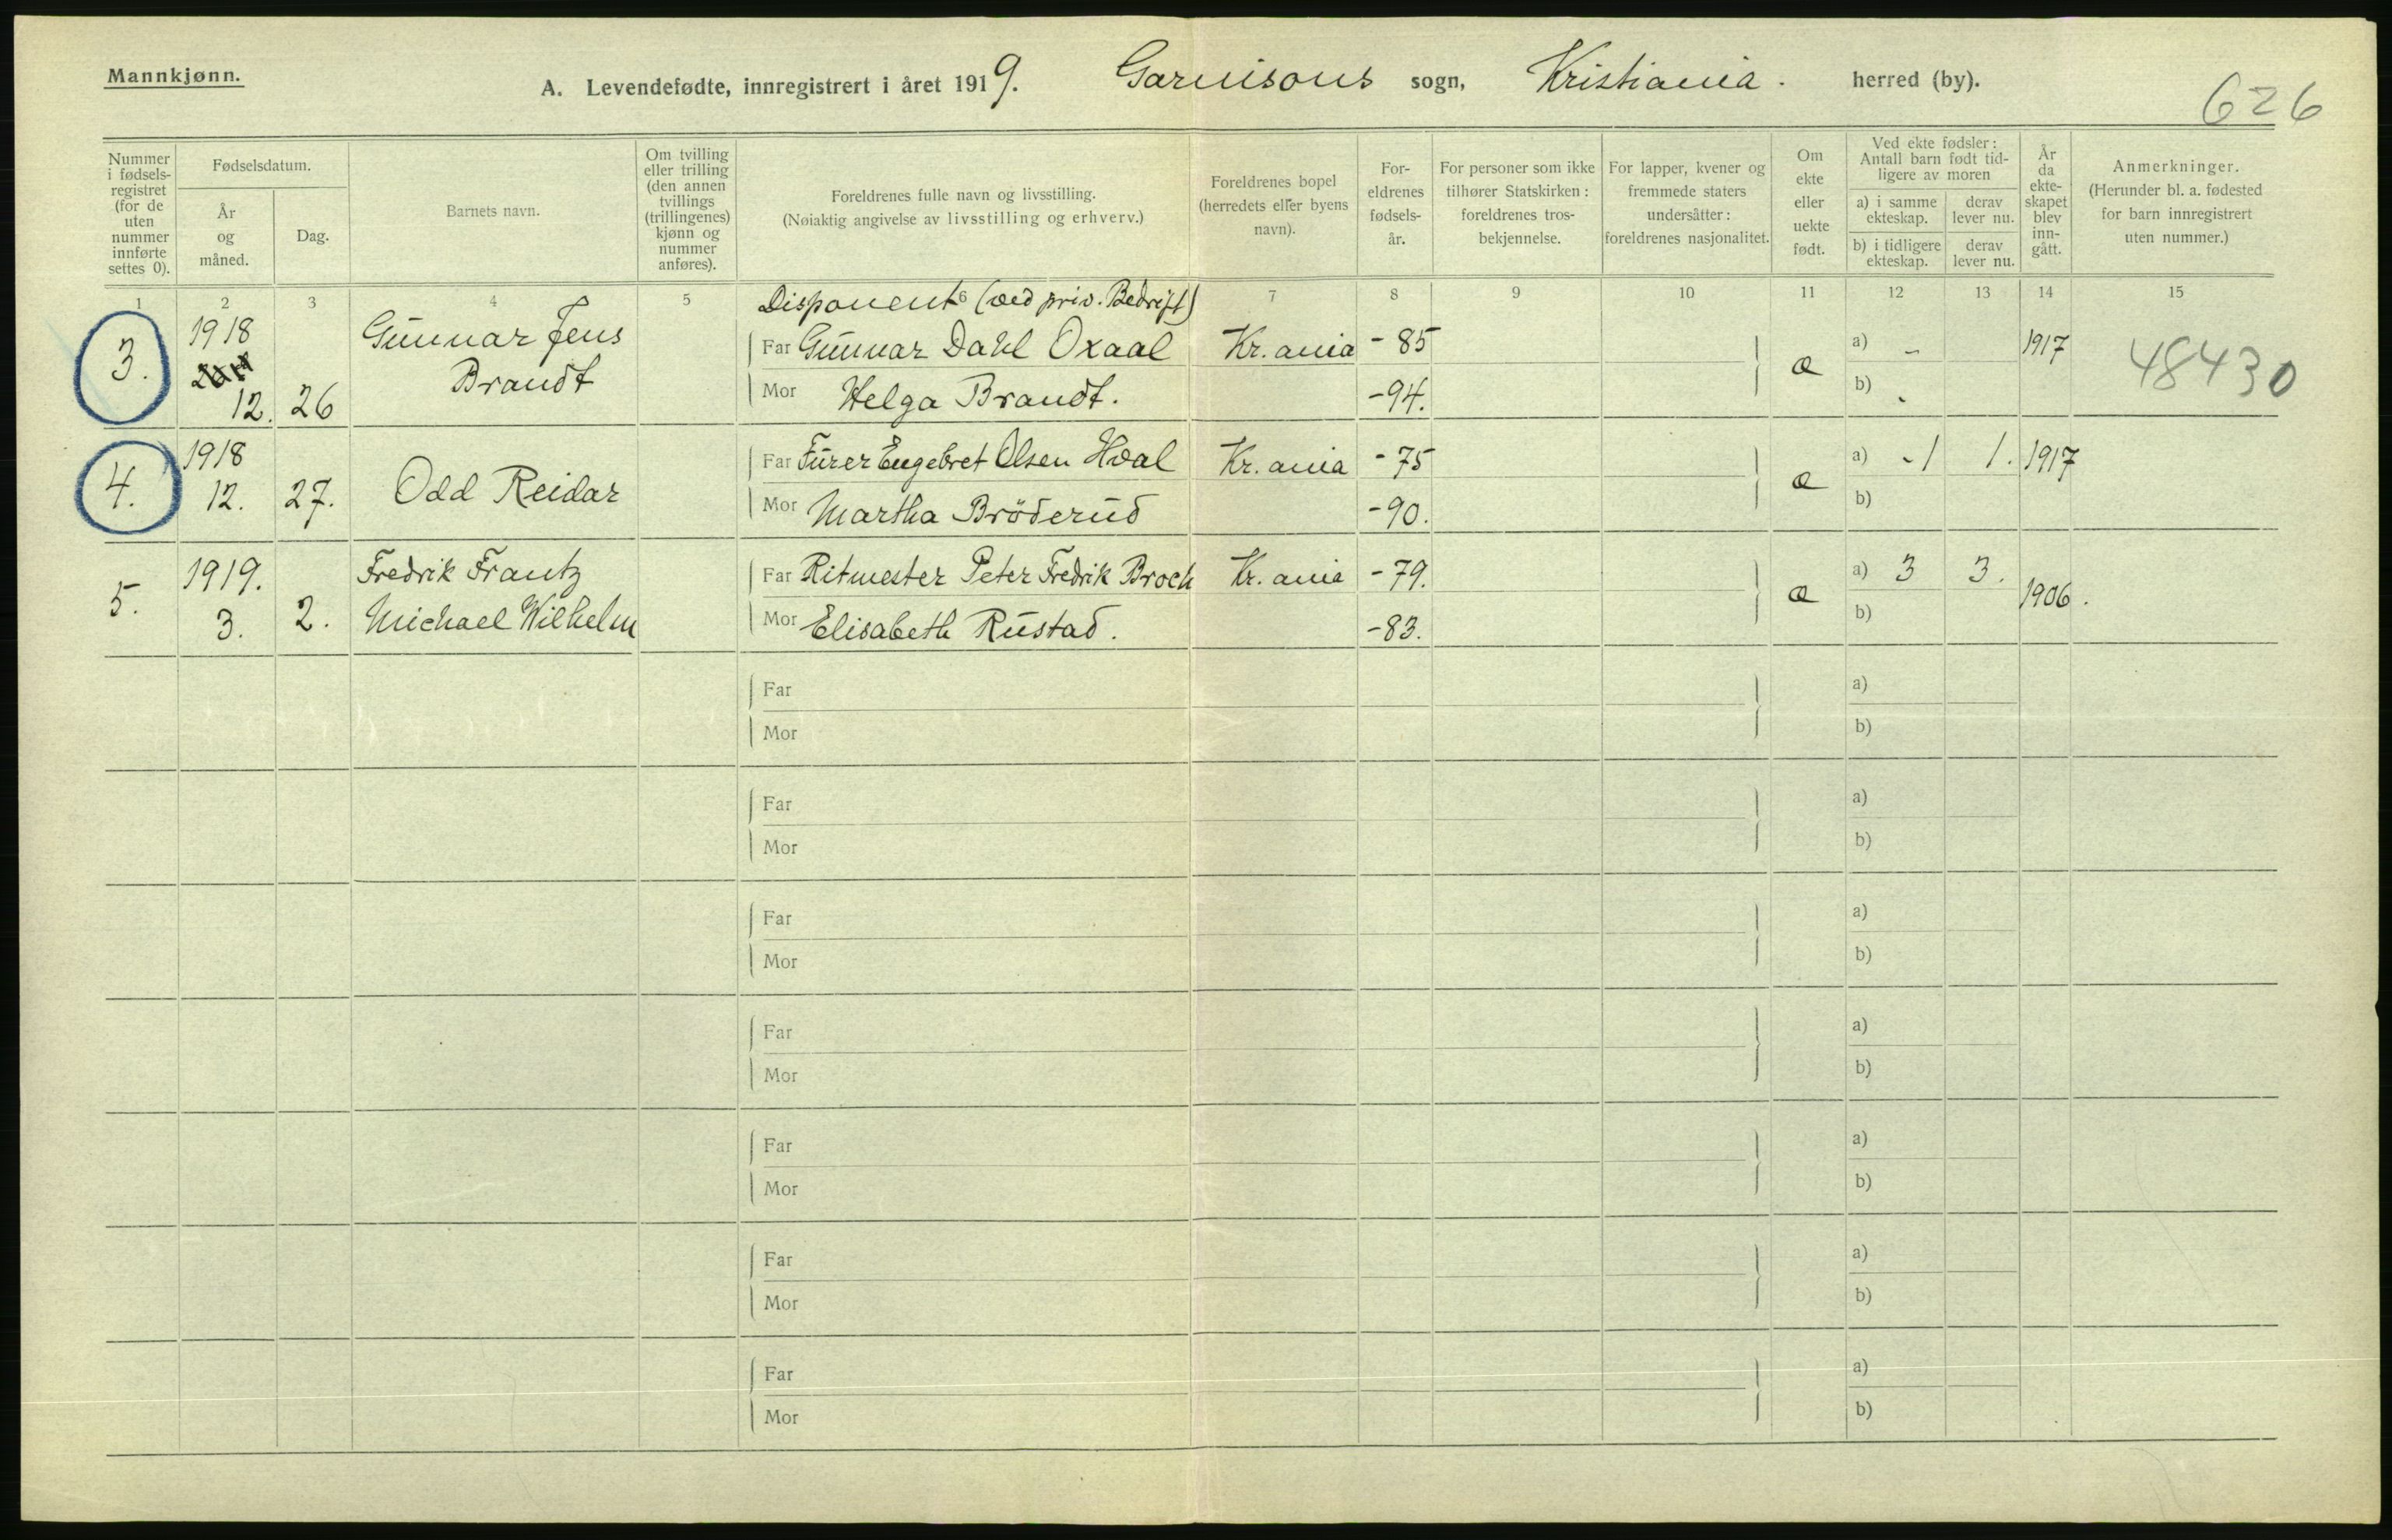 Mannkjønn.
A. Levendefødte, innregistrert i året 1919. Garnisons sogn, Kristiania. herred (by).
626
Nummer i fødsels-registret (for de uten nummer innførte settes 0).
Fødselsdatum.
År og måned.
Dag.
Barnets navn.
Om tvilling eller trilling (den annen tvillings (trillingenes) kjønn og nummer anføres).
Foreldrenes fulle navn og livsstilling.
(Nøiaktig angivelse av livsstilling og erhverv.)
Foreldrenes bopel (herredets eller byens navn).
For-eldrenes fødsels-år.
For personer som ikke tilhører Statskirken: foreldrenes tros-bekjennelse.
For lapper, kvener og fremmede staters undersåtter: foreldrenes nasjonalitet.
Om ekte eller uekte født.
Ved ekte fødsler: Antall barn født tid-ligere av moren
a) i samme ekteskap.
derav lever nu.
b) i tidligere ekteskap.
derav lever nu.
År da ekte-skapet blev inn-gått.
Anmerkninger.
(Herunder bl. a. fødested for barn innregistrert uten nummer.)
1 2 3 4 5 6 7 8 9 10 11 12 13 14 15
Disponent (ved priv. Bedrift)
3. 1918 Gunnar Jens Far Gunnar Dahl Oxaal Kr.ania - 85 æ a) - 1917 48430
12. 26 Brandt Mor Helga Brandt. - 94. b) -
4. 1918 Far Furer Engebret Olsen Hval Kr.ania - 75 æ a) - 1 1. 1917
12. 27. Odd Reidar Mor Martha Bröderud - 90. b)
5. 1919. Fredrik Frantz Far Ritmester Peter Fredrik Broch Kr.ania - 79. æ a) 3 3. 1906.
3. 2. Michael Wilhelm Mor Elisabeth Rustad. - 83. b)
Far a)
Mor b)
Far a)
Mor b)
Far a)
Mor b)
Far a)
Mor b)
Far a)
Mor b)
Far a)
Mor b)
Far a)
Mor b)